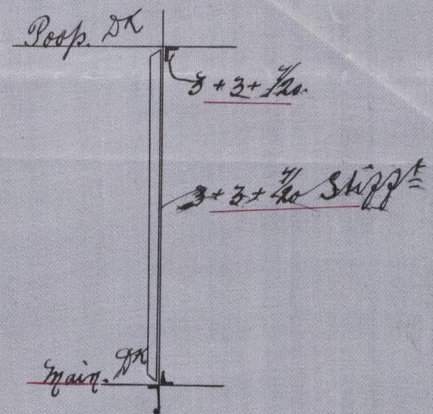 Poop. DK
3 + 3 + 7/20.
3 + 3 + 7/20 Stiff t
Main. DK